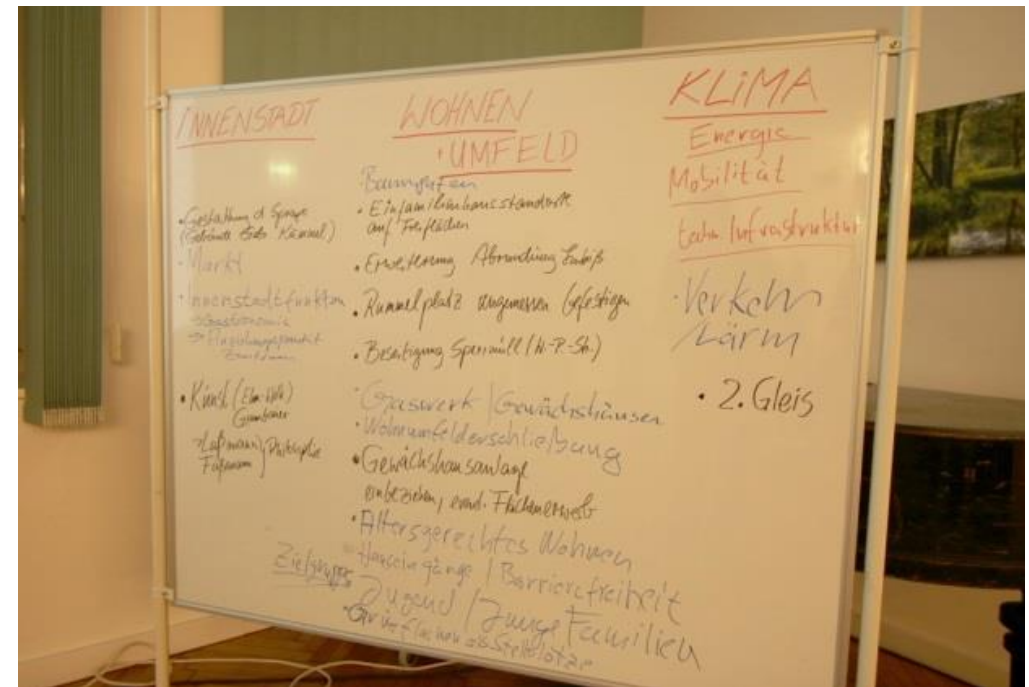 INNENSTADT
• Gestaltung d.
(Gebäude Kümmel)
• Markt
• Innenstadtfunktion
→ Gastronomie
→
• Kunst (
→ Laßmann,
WOHNEN
• UMFELD
• Einfamilienhausstandorte
auf Freiflächen
• Erweiterung Abrundung
• Rummelplatz angemessen befestigen
• Beseitigung Sperrmüll (W.-P.-Str.)
• Gaswerk | Gewächshäuser
• Wohnumfelderschließung
• Gewächshausanlage
einbeziehen, evtl. Flächenerwerb
• Altersgerechtes Wohnen
Hauseingänge | Barrierefreiheit
Zielgruppe Jugend / Junge Familien
• Grünflächen als Stellplätze
KLiMA
Energie
Mobilität
techn Infrastruktur
• Verkehr
Lärm
• 2. Gleis